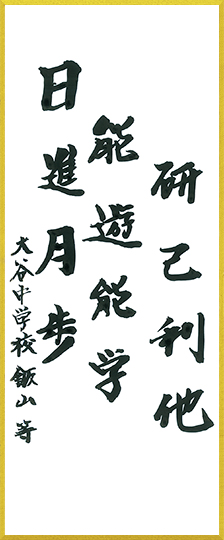 研己利他
能遊能学
日進月歩
大谷中学校 飯山等